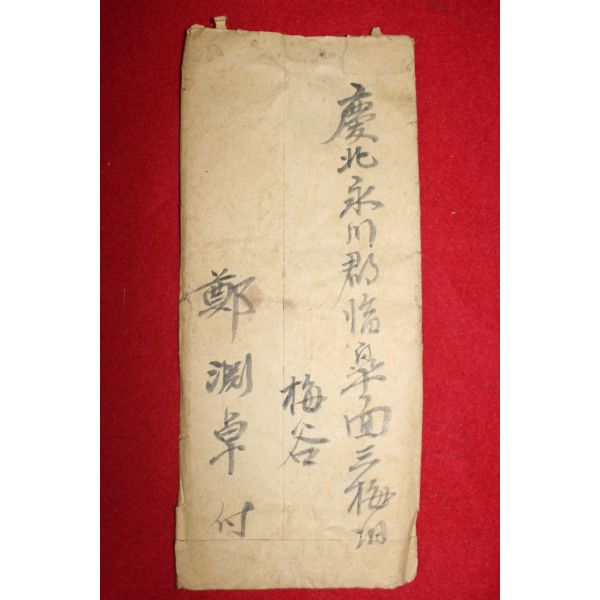 慶北永川郡臨皐面三梅洞
梅谷
鄭淵卓 付